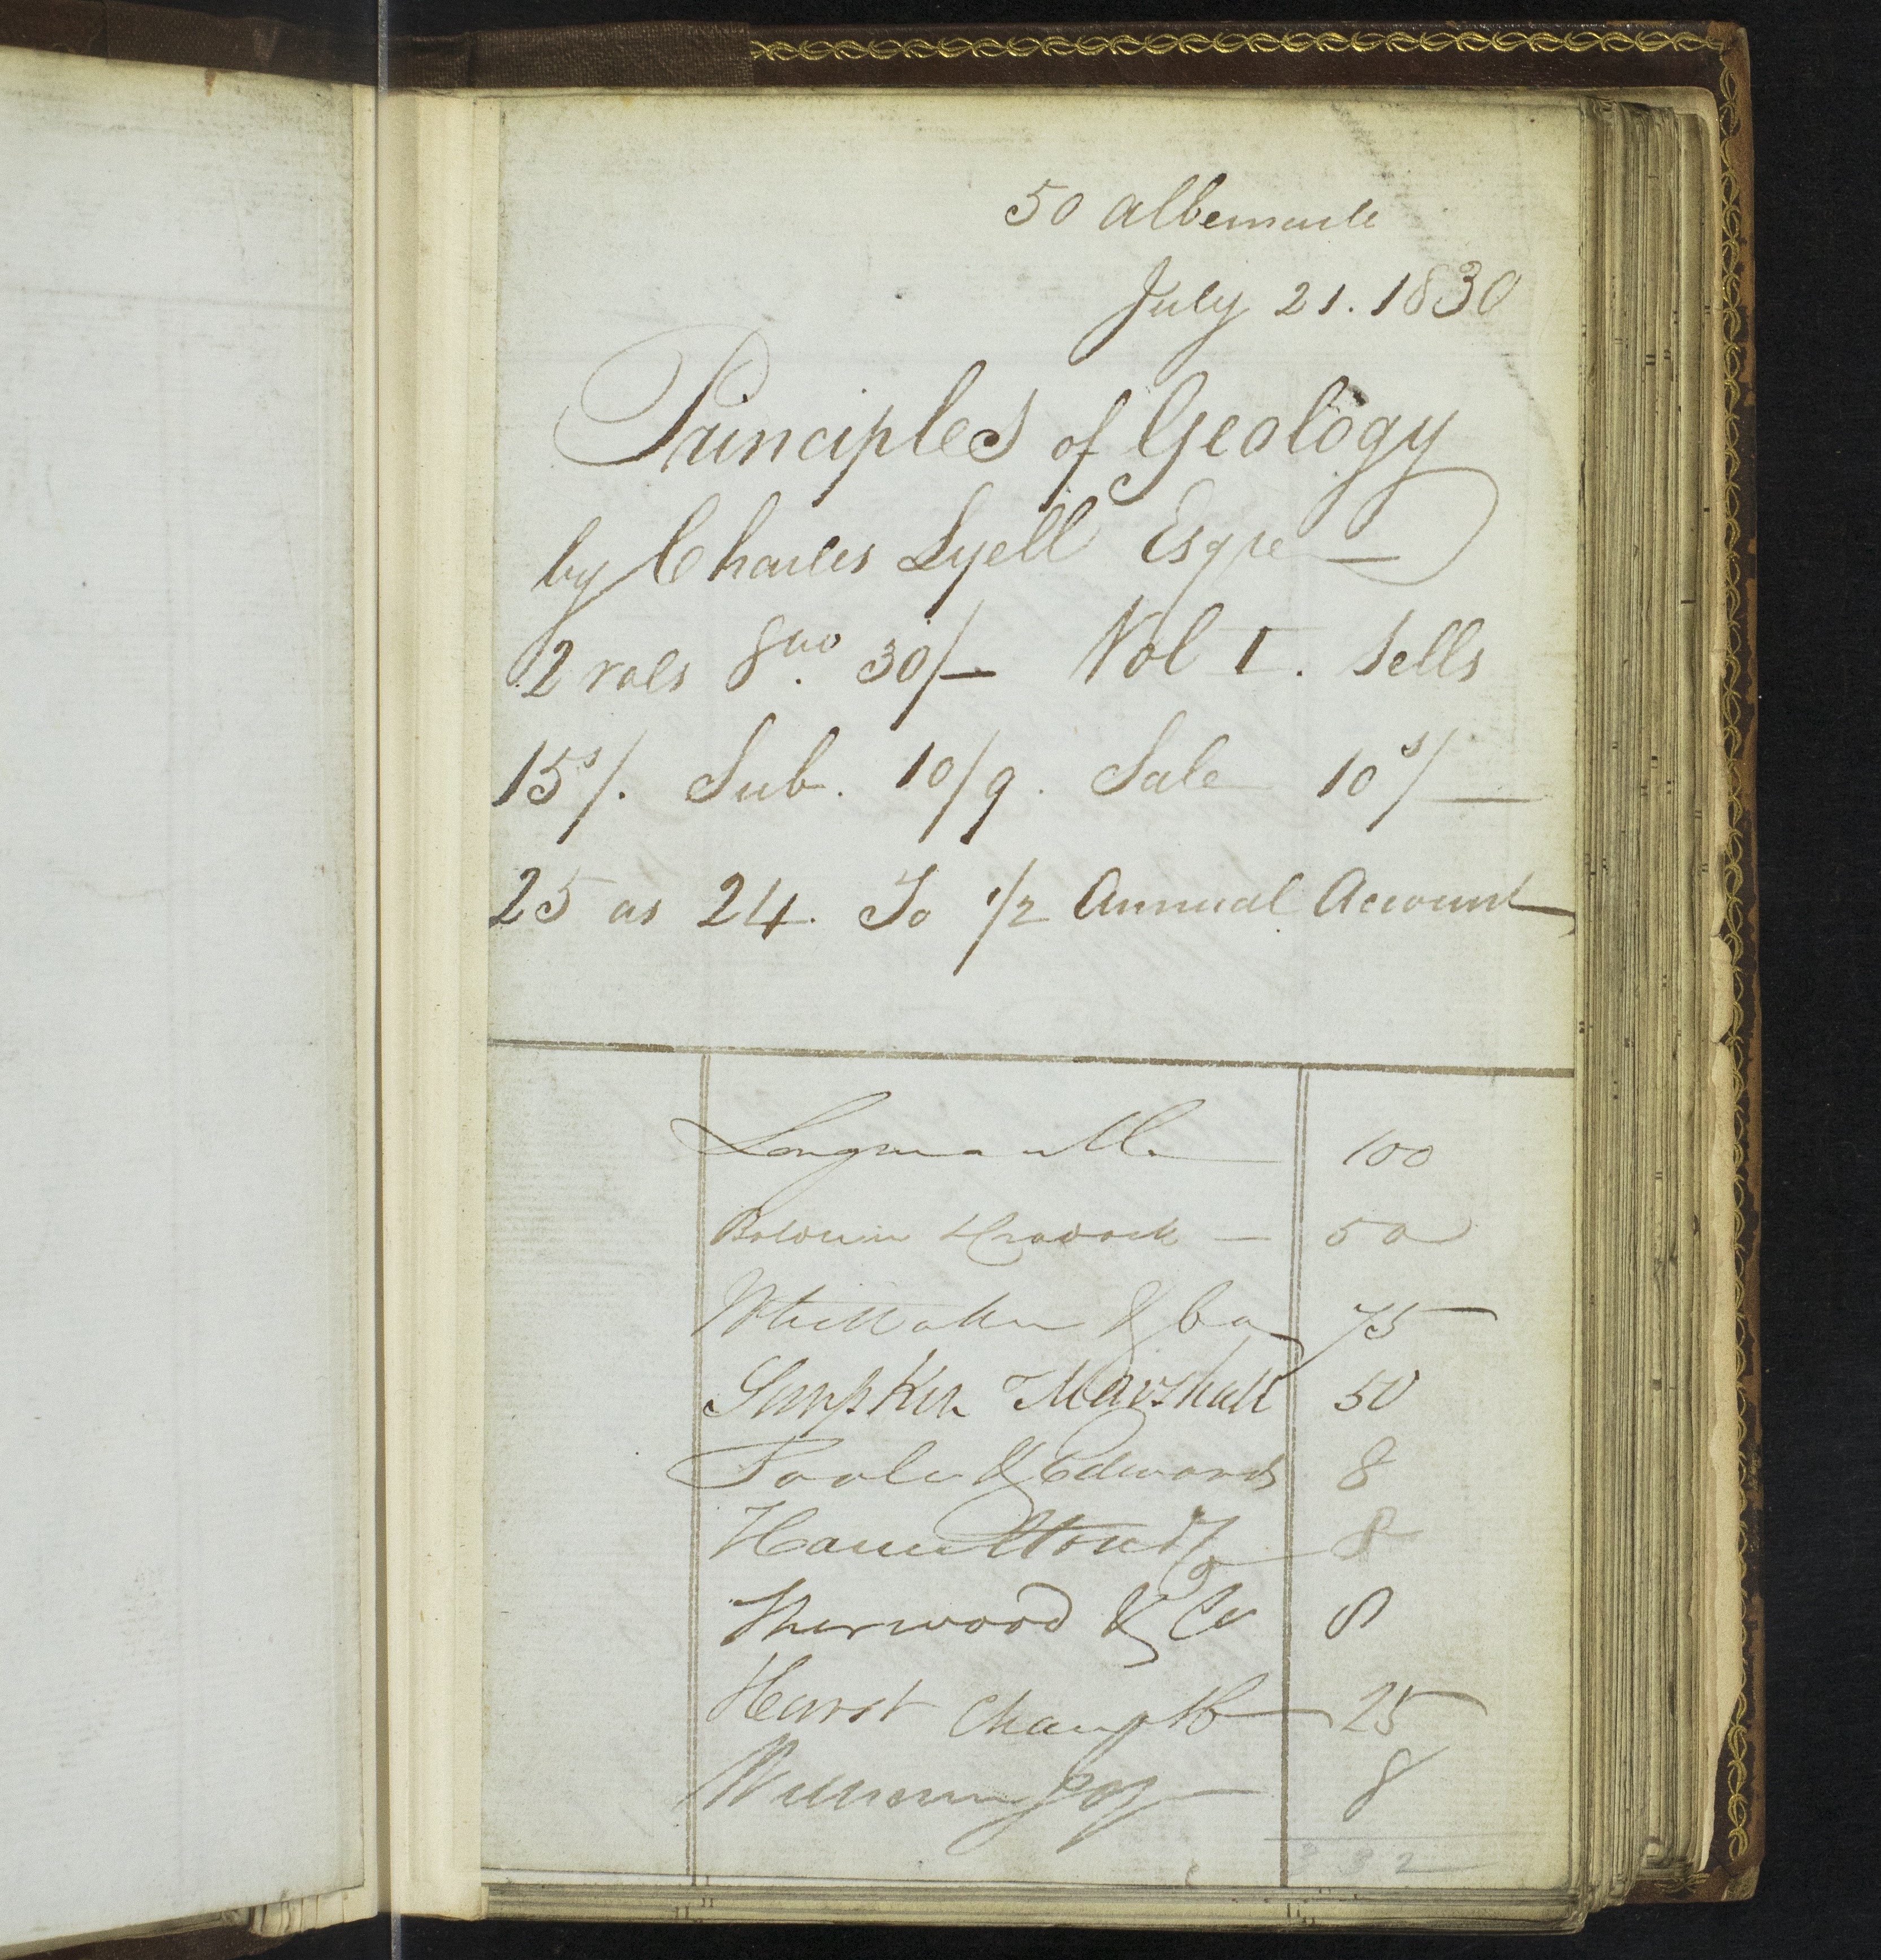 50 Albemarle
July 21. 1830
Principles of Geology
by Charles Lyell Esqre —
2 vols 8vo. 30/— Vol I. sells
15s/. Sub. 10/9. Sale 10s/—
25 as 24. To 1/2 Annual Account
Longman &Co. 100
Baldwin & Cradock — 50
Whittaker & Co 75
Simpkin & Marshall 50
Poole & Edwards 8
Hamilton & Co 8
Sherwood & Co 8
Hurst Chance & Co 25
8
332